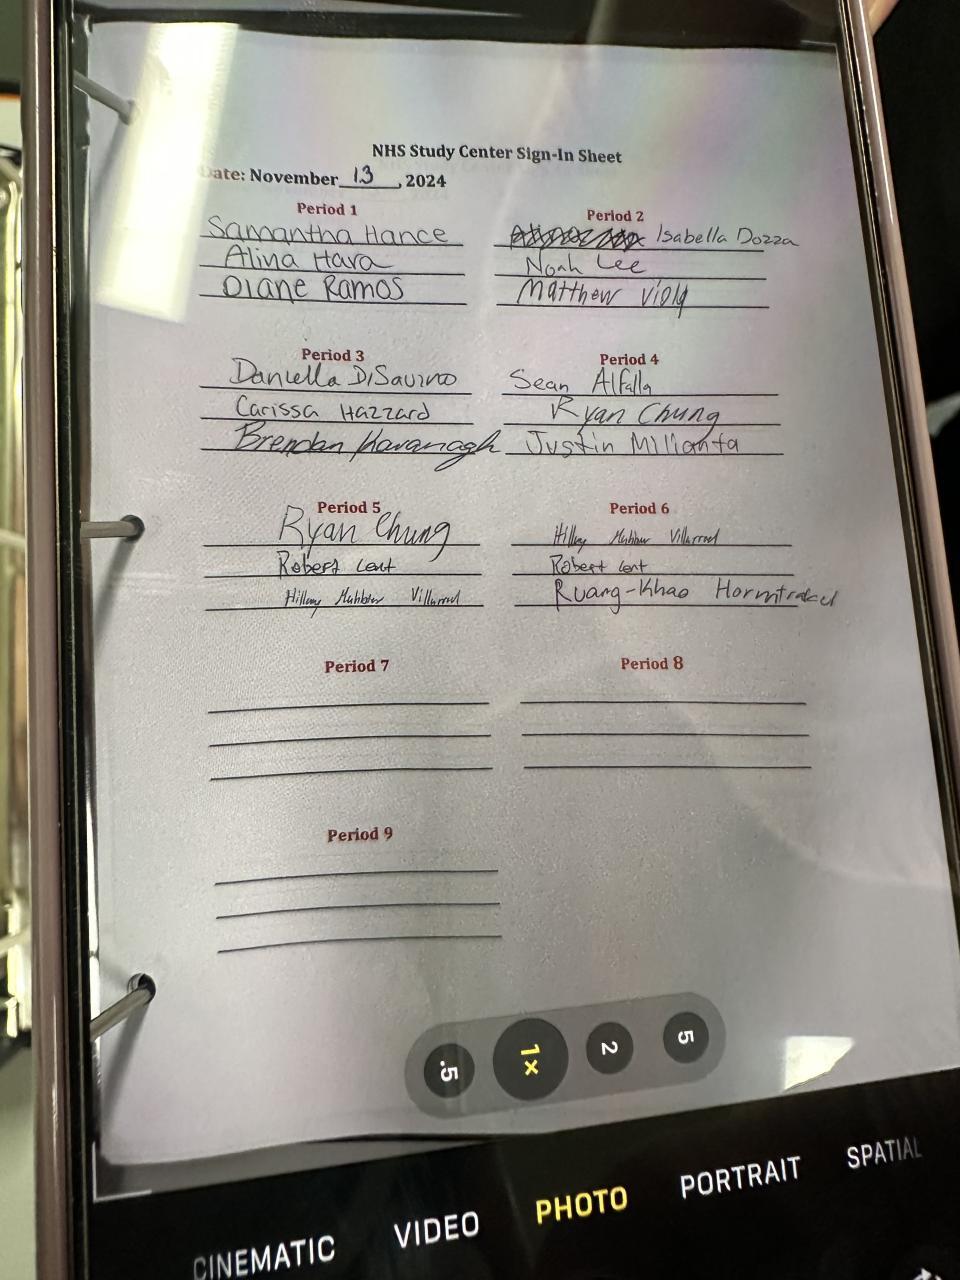 NHS Study Center Sign-In Sheet
Date: November 13, 2024
Period 1
Samantha Hance
Alina Hara
Diane Ramos
Period 2
Isabella Dozza
Noah Lee
Matthew Viola
Period 3
Daniella DiSavino
Carissa Hazzard
Brendan Kavanagh
Period 4
Sean Alfalla
Ryan Chung
Justin Millanta
Period 5
Ryan Chung
Robert Lent
Hillary Villarreal
Period 6
Hillary Villarreal
Robert Lent
Ruang-Khao
Period 7
Period 8
Period 9
.5
1×
2
5
CINEMATIC VIDEO PHOTO PORTRAIT SPATIAL